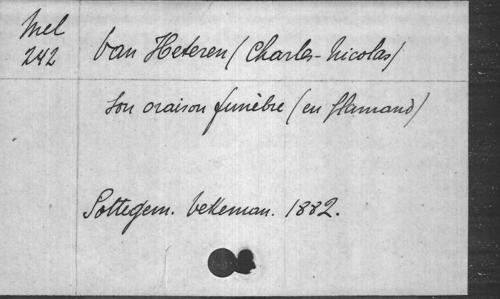 Mel
242
Van Heteren (Charles-Nicolas)
Son oraison funèbre (en flamand)
Sottegem. 1882.